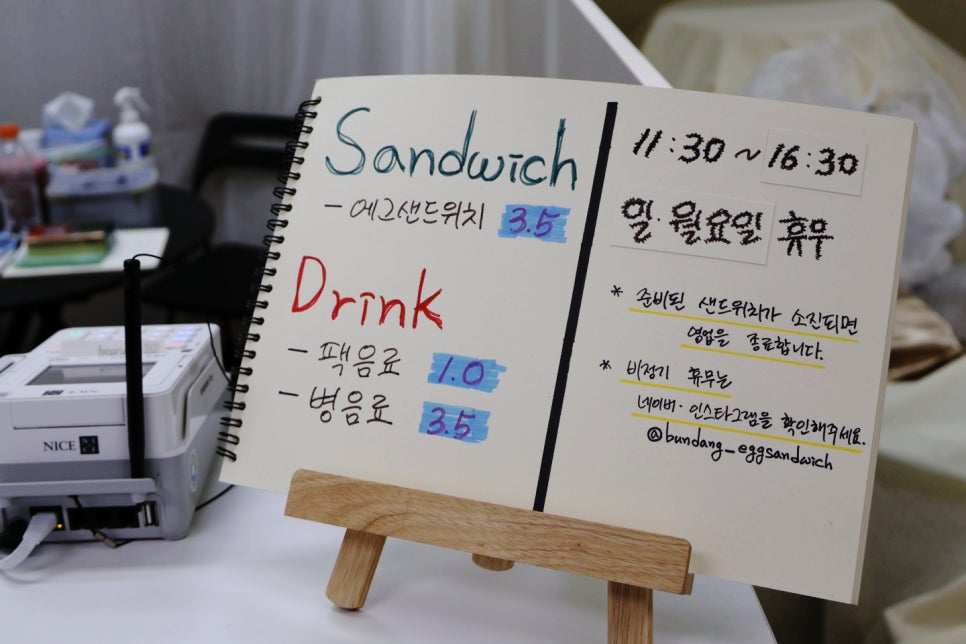 Sandwich
- 에그샌드위치 3.5
Drink
- 팩음료 1.0
- 병음료 3.5
11:30 ~ 16:30
일·월요일 휴무
* 준비된 샌드위치가 소진되면
영업을 종료합니다.
* 비정기 휴무는
네이버·인스타그램을 확인해주세요.
@bundang_eggsandwich
NICE